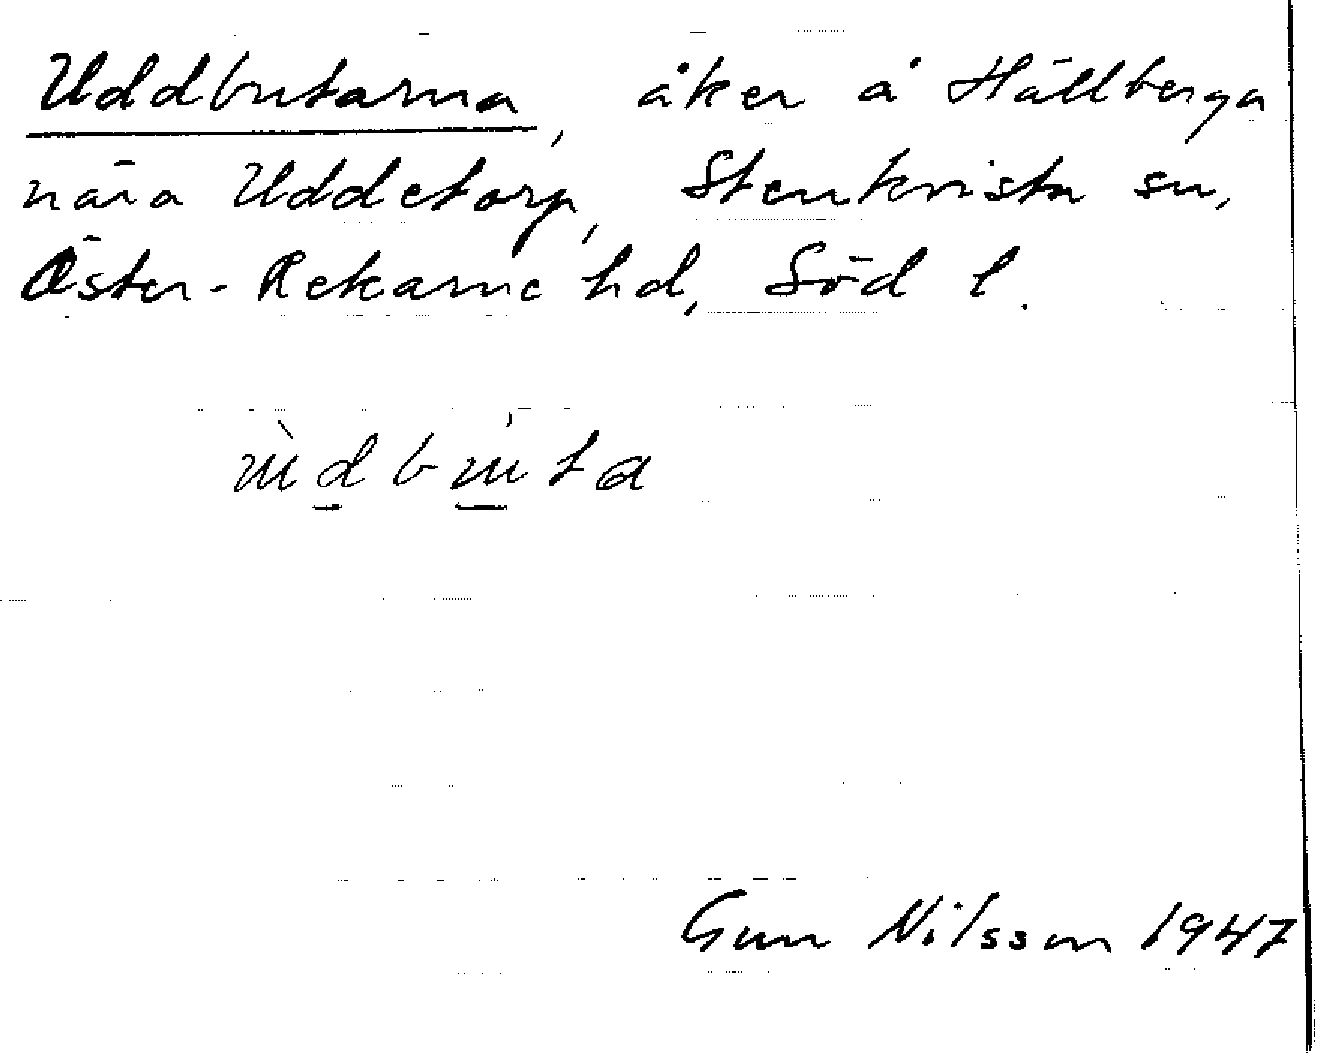 Uddbutarna, åker å Hällberga
nära Uddetorp, Stenkvista sn,
Öster-Rekarne hd, Söd l.
Gun Nilsson 1947